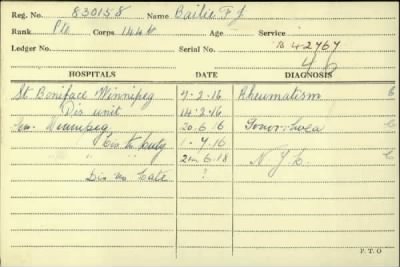 Reg. No. 830158 Name Bailie F J
Rank Pte Corps 144th Age Service
Ledger No. Serial No. B 42767
46
HOSPITALS DATE DIAGNOSIS
St Boniface Winnipeg 7-2-16 Rheumatism C
Dis unit 14-2-16
Winnipeg 20-6-16 Gonorrhoea C
Dis to Duty 1-7-16
" 21-6-18 N.Y.D. C
Dis no date ?
P.T.O